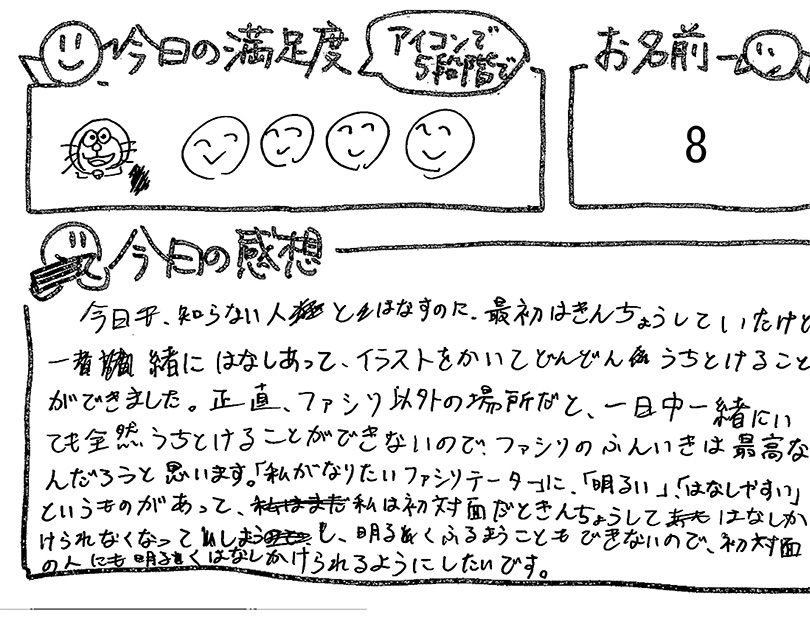 今日の満足度
アイコンで
5段階で
お名前
8
今日の感想
今日も、知らない人とはなすのに、最初はきんちょうしていたけど
一緒にはなしあって、イラストをかいてどんどんうちとけること
ができました。正直、ファシリ以外の場所だと、一日中一緒にい
ても全然うちとけることができないので、ファシリのふんいきは最高な
んだろうと思います。「私がなりたいファシリテーター」に、「明るい」、「はなしやすい」
というものがあって、私は初対面だときんちょうしてはなしか
けられなくなってしまうし、明るくふるまうこともできないので、初対面
の人にも明るくはなしかけられるようにしたいです。